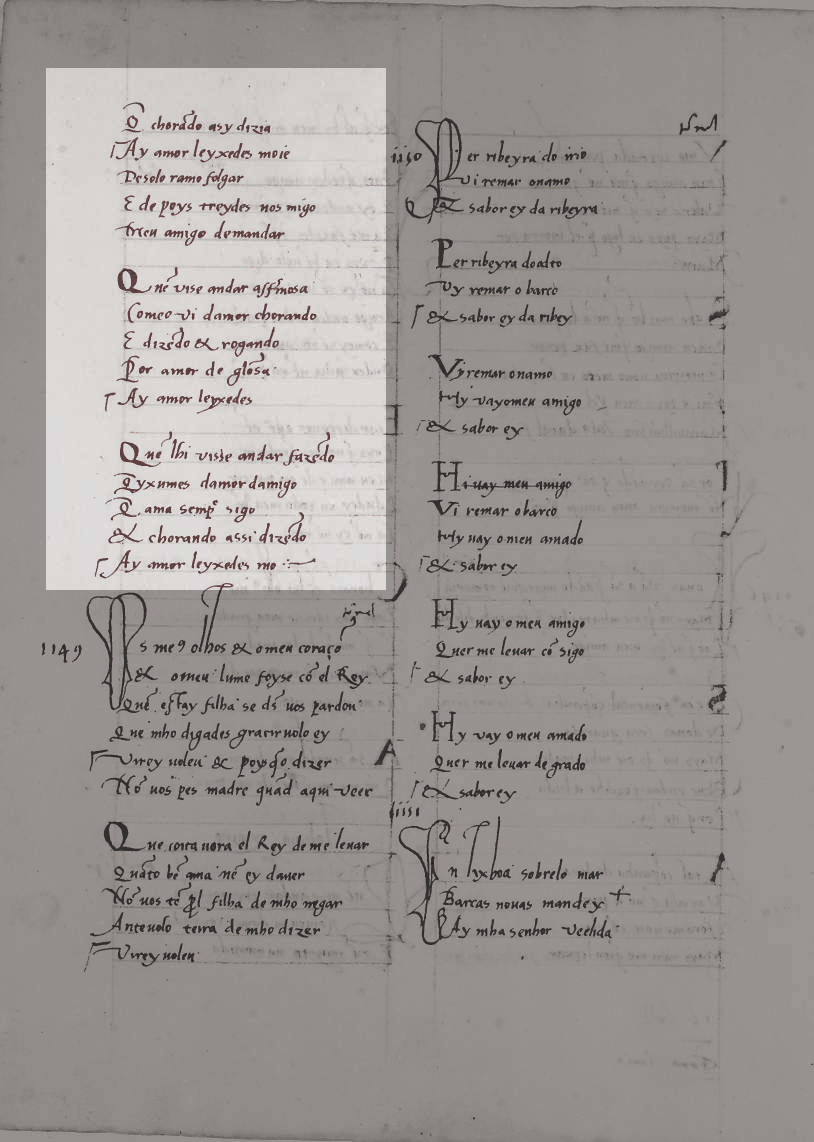 Q̃ chorãdo asy dizia
Ay amor leyxedes moie
De solo ramo folgar
E de poys treydes uos migo
Meu amigo demandar
Quẽ vise andar
Comeo vi damor chorando
E dizẽdo & rogando
Por amor de gl̃osa
Ay amor leyxedes
Quẽ lhi visse andar fazẽdo
Q̃yxumes damor damigo
Q̃ ama semp̃ sigo
& chorando assi dizẽdo
Ay amor leyxedes mo
1149
Os me9 olhos & o meu coraçõ
& o meu lume foyse cõ el Rey
Quẽ estay filha se ds̃ uos pardon
Que mho digades gracir uolo ey
Direy uoleu & poys q̃o dizer
Nõ uos pes madre quãd aqui veer
Que coita uora el Rey de me leuar
Quãto bẽ ama nẽ ey dauer
Nõ uos tẽ p̃l filha de mho negar
Ante uolo terra de mho dizer
Direy uoleu
1150
Per ribeyra do irio
Vi remar o namo
& sabor ey da ribeyra
Per ribeyra do alto
Vy remar o barco
& sabor ey da ribey
Vy remar o namo
Hy vay o meu amigo
& sabor ey
Hi uay meu amigo
Vi remar o barco
Hy uay o meu amado
& sabor ey
Hy uay o meu amigo
Quer me leuar cõ sigo
& sabor ey
Hy vay o meu amado
Quer me leuar de grado
& sabor ey
1151
En Lixboa sobrelo mar
Barcas nouas mandey
Ay mha senhor velida